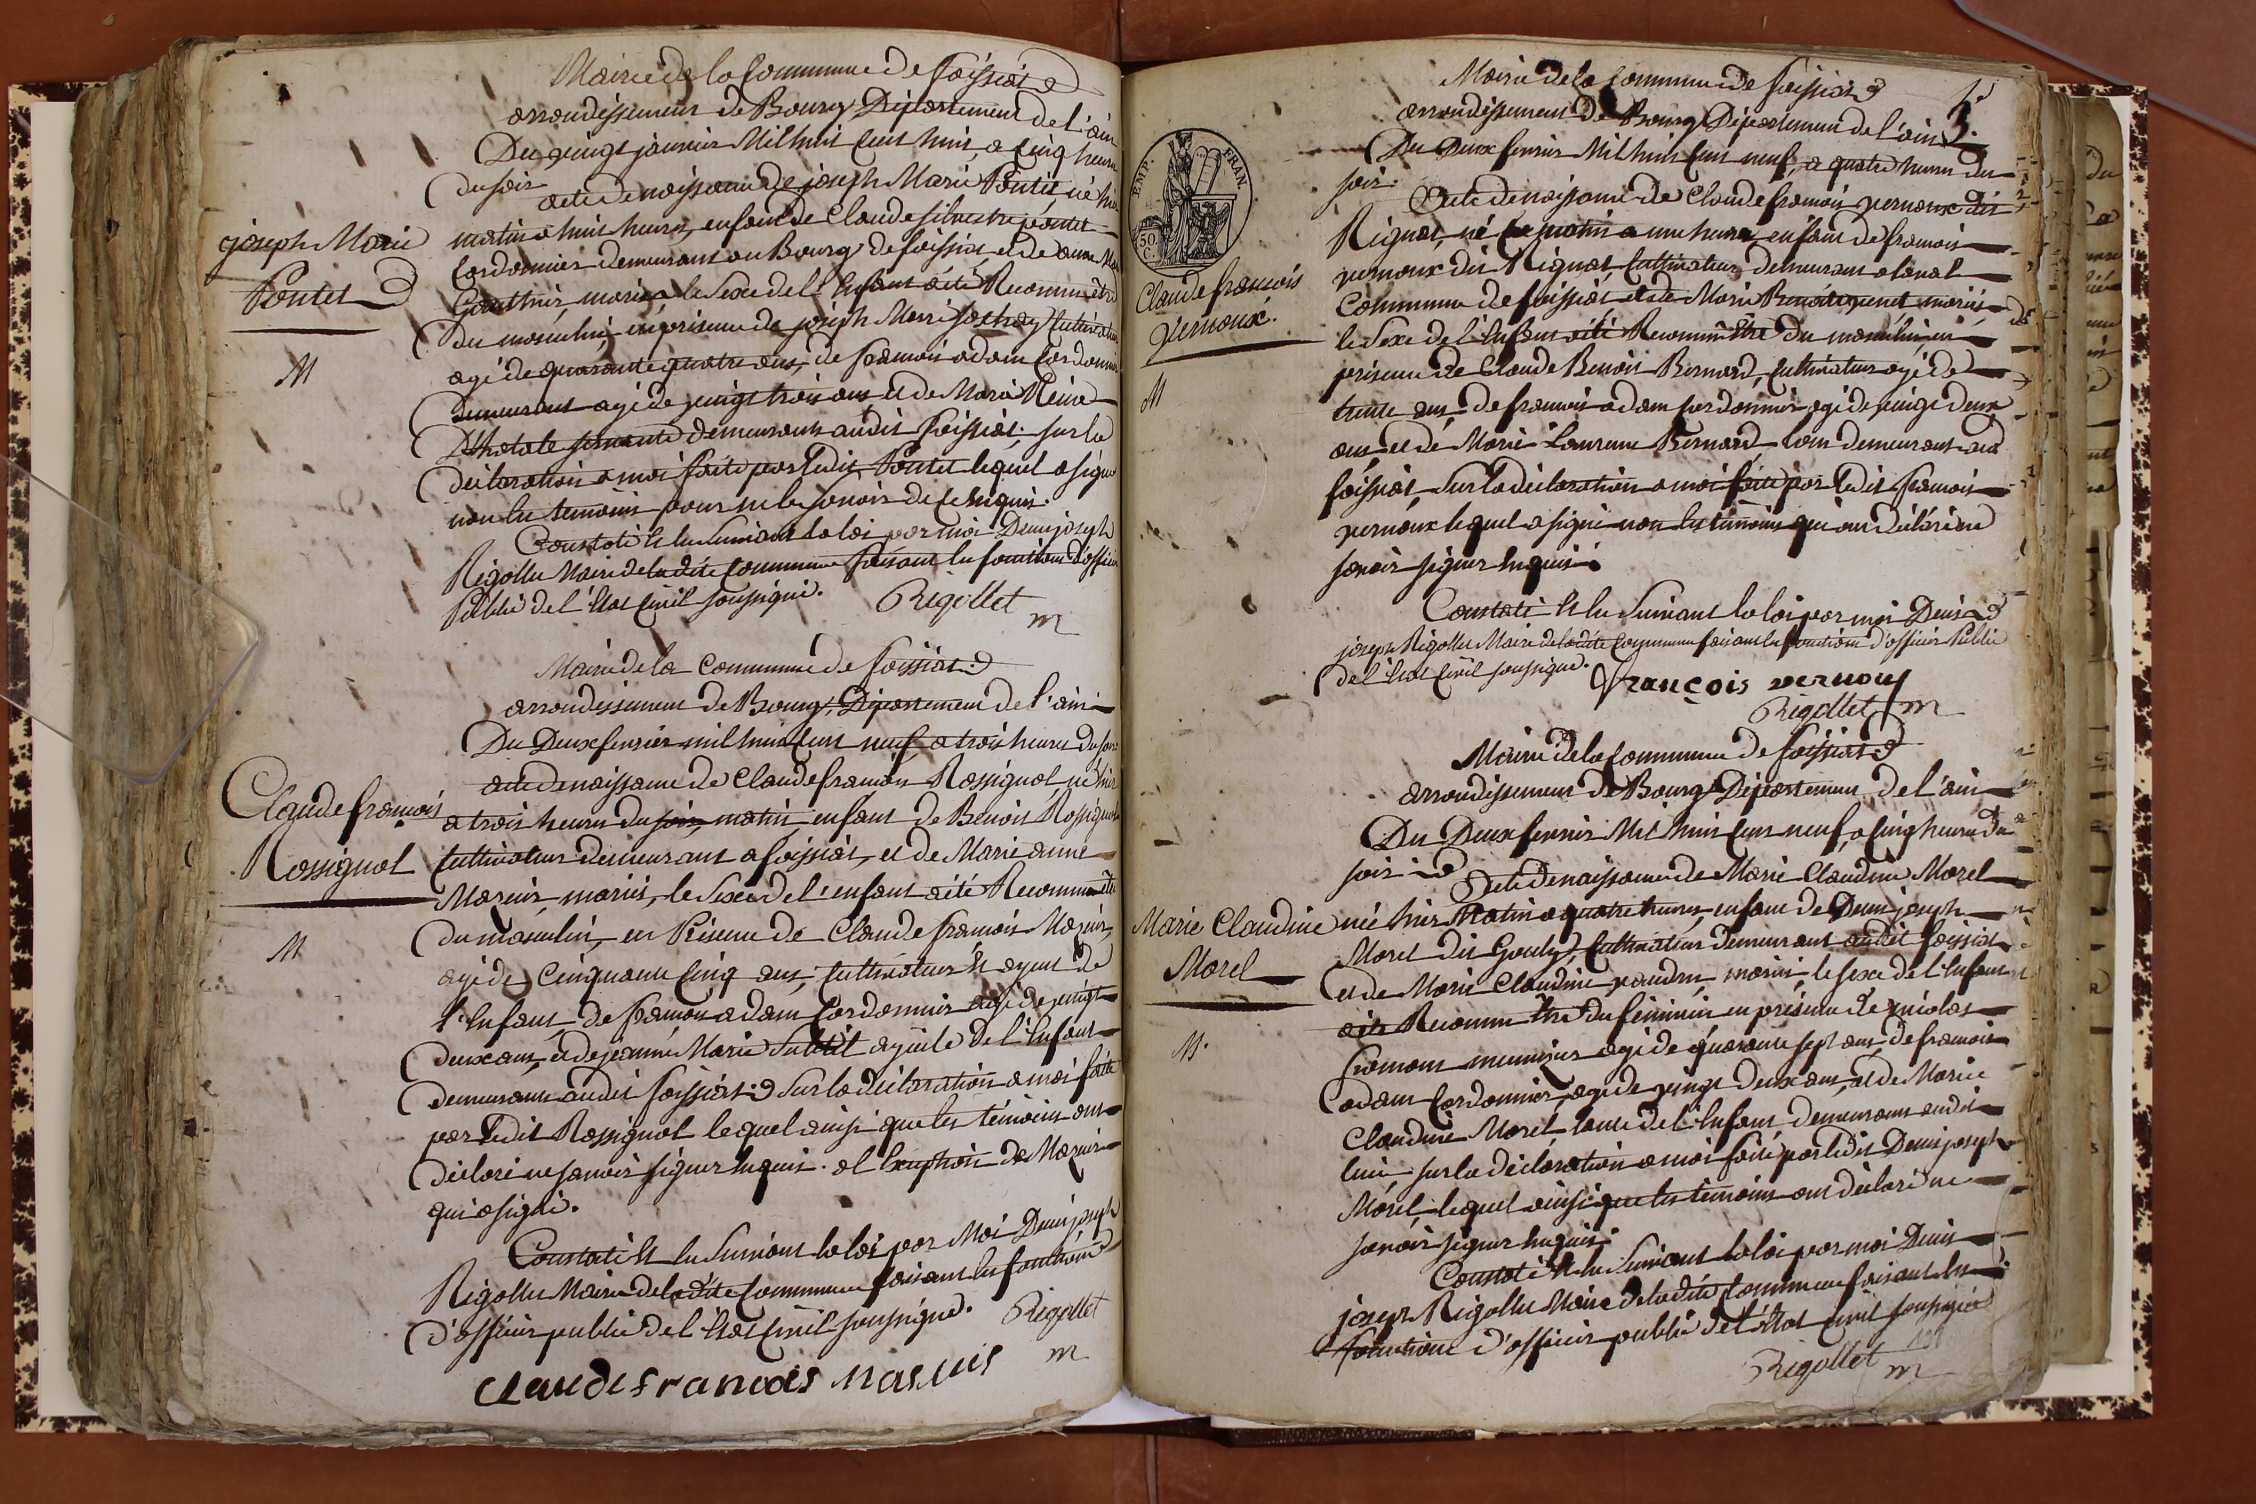 Mairie de la Commune de foissiat
arrondissement de Bourg Département de l'ain
Du vingt janvier Mil huit cent huit, a cinq heures
du soir
acte de naissance de joseph Marie Pontet, né hier
matin a huit heures, enfant de Claude silvestre pontet
Cordonnier demeurant au Bourg de foissiat et de anne
joseph Marie
Pontet
M
mariés le sexe de l'enfant a été Reconnu être
du masculin, en présence de joseph Marie Cultivateur
agé de quarante quatre ans, de francois adam Cordonnier
demeurant agé de vingt trois ans et de Marie Reine
demeurants audit foissiat. sur la
déclaration a moi faite par ledit Pontet lequel a signé
non les temoins pour ne le savoir de ce Enquis.
Constaté et lu suivant la loi par moi Denis joseph
Rigollet Maire de ladite Commune faisant les fonctions d'officier
Public de l'état Civil soussigné. Rigollet
m
Mairie de la Commune de foissiat
arrondissement de Bourg, Département de l'ain
Du Deux fevrier mil huit cent neuf a trois heures du soir
acte de naissance de Claude francois Rossignol, né hier
Claude francois
Rossignol
M
a trois heures du soir, matin enfant de Benoit Rossignol
Cultivateur demeurant a foissiat, et de Marie anne
mariés, le sexe de l'enfant a été Reconnu être
du masculin, en Présence de Claude francois
agé de Cinquante Cinq ans, Cultivateur et ayeul de
l'Enfant, de francois adam Cordonnier agé de vingt
deux ans, et de jeanne Marie Subtil ayeule de l'Enfant
demeurants audit foissiat. sur la déclaration a moi faite
par ledit Rossignol lequel ainsi que les témoins ont
déclaré ne savoir signer Enquis. a l'exception de
qui a signé.
Constaté et lu suivant la loi par Moi Denis joseph
Rigollet Maire de la dite Commune faisant les fonctions
d'officier public de l'état Civil soussigné. Rigollet
m
claude francois
Mairie de la Commune de foissiat
arrondissement de Bourg Département de l'ain
3.
Du Deux fevrier Mil huit cent neuf, a quatre heures du
soir.
EMP. FRAN.
50 C.
Claude francois
vernoux.
M
Acte de naissance de Claude francois vernoux dit
Rignat, né ce matin a une heure enfant de francois
vernoux dit Rignat Cultivateur demeurant a
Commune de foissiat et de Marie mariés
le sexe de l'Enfant a été Reconnu être du masculin, en
présence de Claude Benoit Bernard, Cultivateur agé de
trente ans, de francois adam cordonnier agé de vingt deux
ans, et de Marie Laurence Bernard tous demeurant aud
foissiat sur la déclaration a moi faite par ledit francois
vernoux lequel a signé non les témoins qui ont déclaré ne
savoir signer Enquis.
Constaté et lu suivant la loi par moi Denis
joseph Rigollet Maire de ladite Commune faisant les fonctions d'officier Public
de l'état Civil soussigné.
françois vernoux
Rigollet m
Mairie de la Commune de foissiat
arrondissement de Bourg Département de l'ain
Du Deux fevrier Mil huit cent neuf, a cinq heures du
soir
Acte de naissance de Marie Claudine Morel
Marie Claudine
Morel
M.
née hier Matin a quatre heures, enfant de Denis joseph
Morel dit Cultivateur demeurant audit foissiat
et de Marie Claudine mariés, le sexe de l'Enfant
a été Reconnu être du féminin en présence de nicolas
meunier agé de quarante sept ans, de francois
adam Cordonnier, agé de vingt deux ans, et de Marie
Claudine Morel, tante de l'Enfant, demeurants audit
lieu, sur la déclaration a moi faite par ledit Denis joseph
Morel, lequel ainsi que les temoins ont déclaré ne
savoir signer Enquis.
Constaté et lu suivant la loi par moi Denis
joseph Rigollet Maire de ladite Commune faisant les
fonctions d'officier public de l'état Civil soussigné
Rigollet m